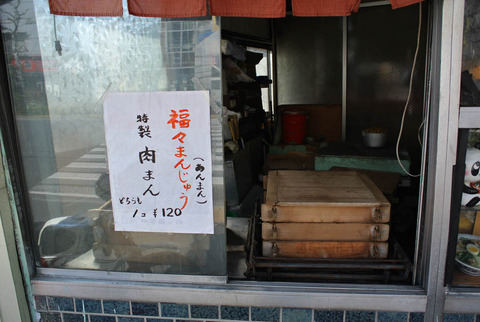 福々まんじゅう
(あんまん)
特製 肉まん
どちらも
1コ ¥120